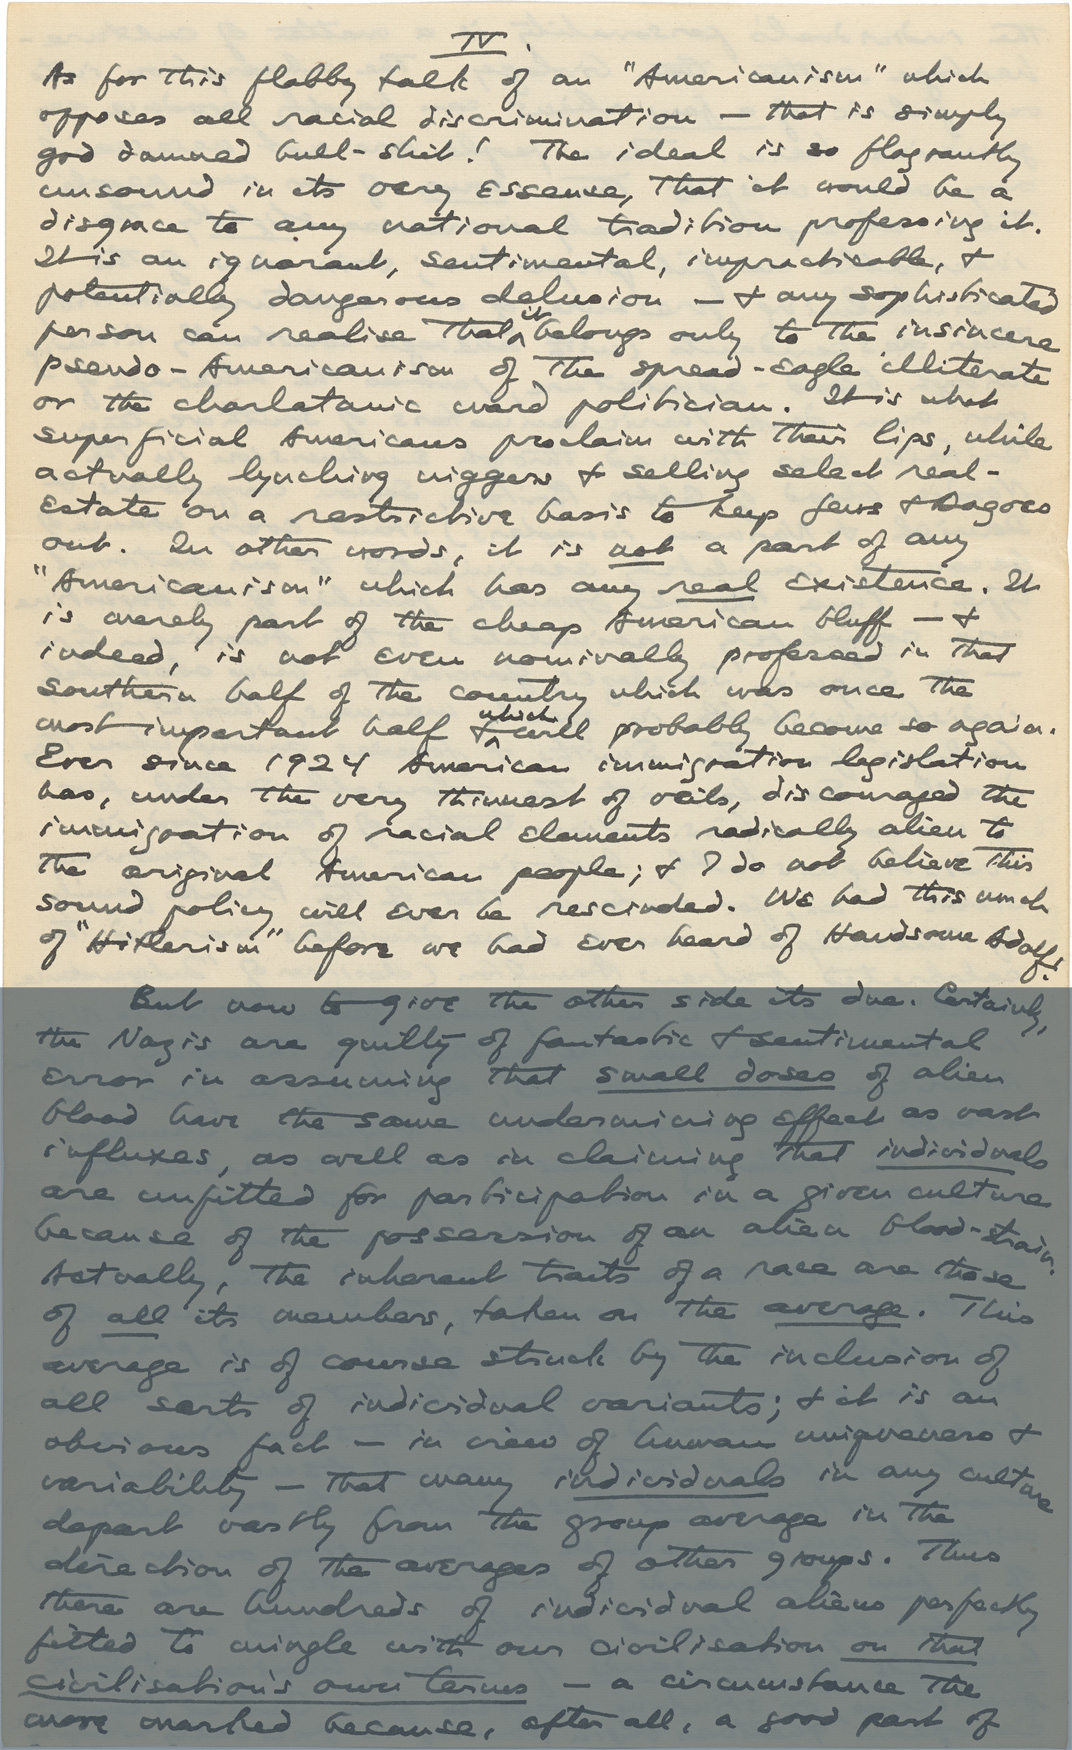 IV.
As for this flabby talk of an "Americanism" which
opposes all racial discrimination — that is simply
god damned bull-shit! The ideal is so flagrantly
unsound in its very essense, that it would be a
disgrace to any national tradition professing it.
It is an ignorant, sentimental, impracticable, &
potentially dangerous delusion — & any sophisticated
person can realise that it belongs only to the insincere
pseudo-Americanism of the spread-eagle illiterate
or the charlatanic ward politician. It is what
superficial Americans proclaim with their lips, while
actually lynching niggers & selling select real-
estate on a restrictive basis to keep Jews & Dagoes
out. In other words, it is not a part of any
"Americanism" which has any real existence. It
is merely part of the cheap American bluff — &
indeed, is not even nominally professed in that
southern half of the country which was once the
most important half & which will probably become so again.
Ever since 1924 American immigration legislation
has, under the very thinnest of veils, discouraged the
immigration of racial elements radically alien to
the original American people; & I do not believe this
sound policy will ever be rescinded. We had this much
of "Hitlerism" before we had ever heard of Handsome Adolf!
But now to give the other side its due. Certainly,
the Nazis are guilty of fantastic & sentimental
error in assuming that small doses of alien
blood have the same undermining effect as vast
influxes, as well as in claiming that individuals
are unfitted for participation in a given culture
because of the possession of an alien blood-strain.
Actually, the inherent traits of a race are those
of all its members, taken on the average. This
average is of course struck by the inclusion of
all sorts of individual variants; & it is an
obvious fact — in view of human uniqueness &
variability — that many individuals in any culture
depart vastly from the group average in the
direction of the averages of other groups. Thus
there are hundreds of individual aliens perfectly
fitted to mingle with our civilisation on that
civilisation's own terms — a circumstance the
more marked because, after all, a good part of